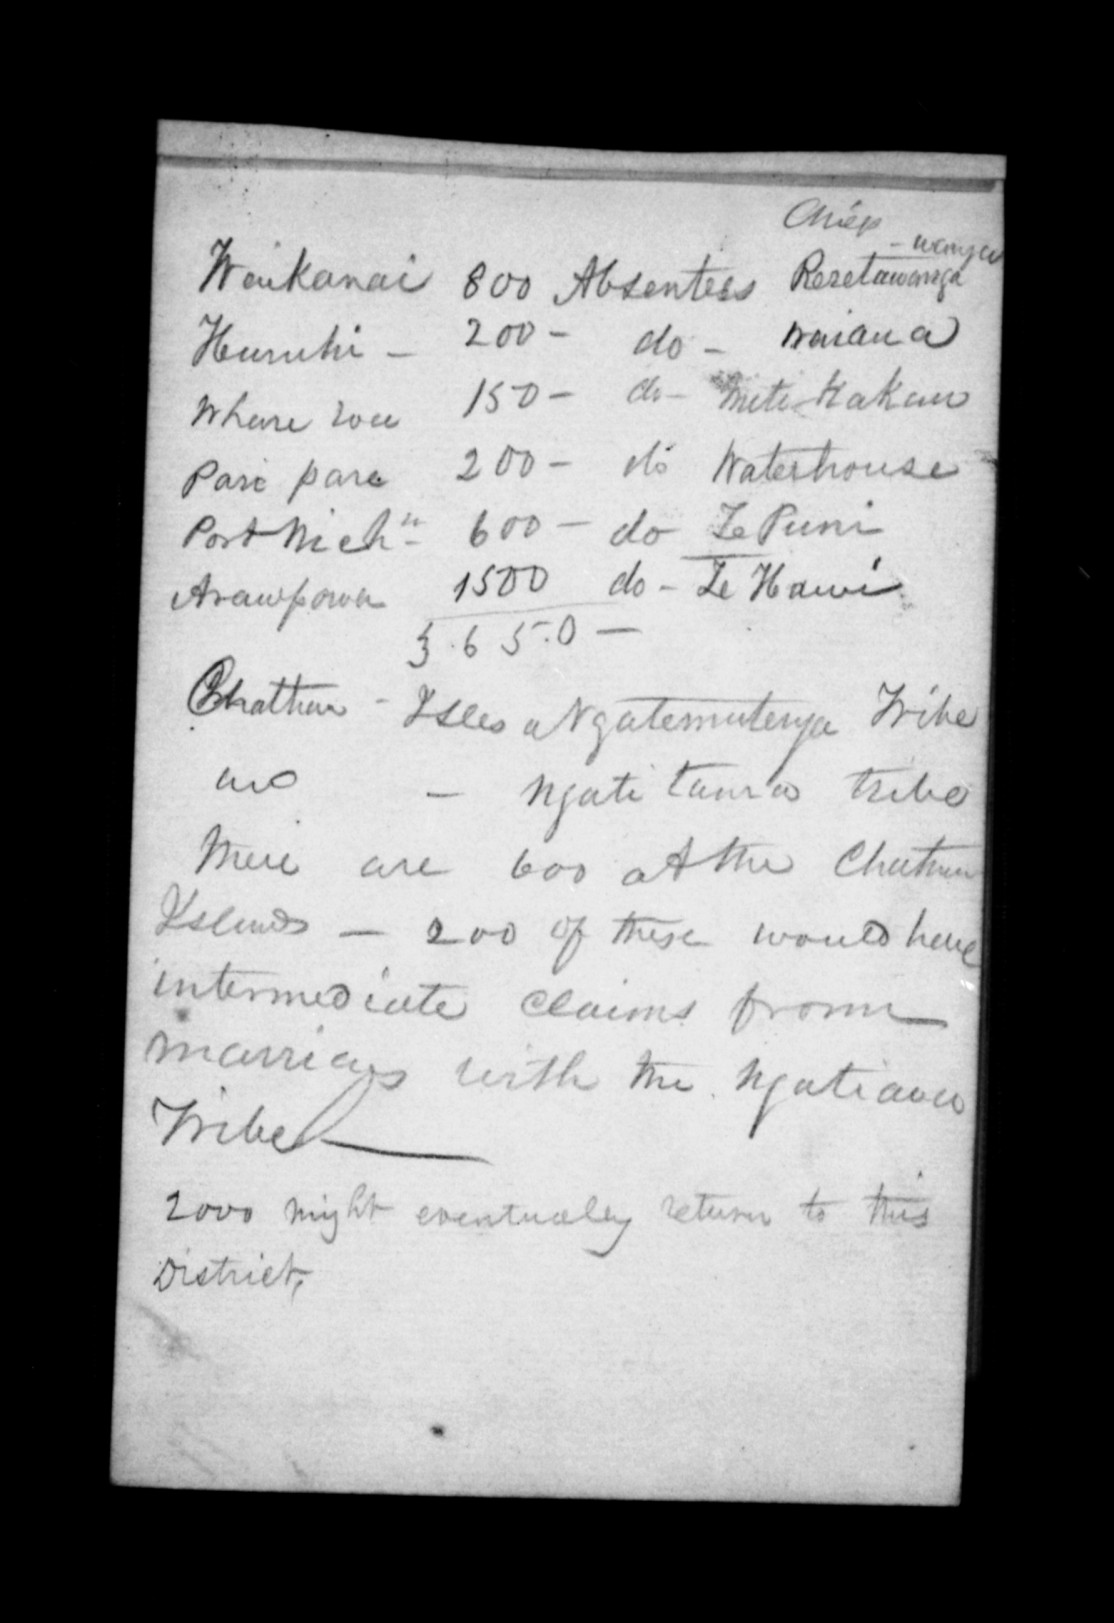 Chief
- wanga
Waikanai 800 Absentees Reretawanga
Huruhi - 200 - do - Waiaua
Whare roa 150 - do - Miti Kakau
Pari para 200 - do Waterhouse
Port Nich:" - 600 - do Te Puni
Arawpowa 1500 do - Te Hawi
3.65.0 -
Chatham - Isles a Ngatemutenga Tribe
- Ngati tama tribe
There are 600 at the Chatham
Islands - 200 of these would have
intermediate claims from
marriages with the Ngatiawa
Tribe
2000 might eventually return to this
District,